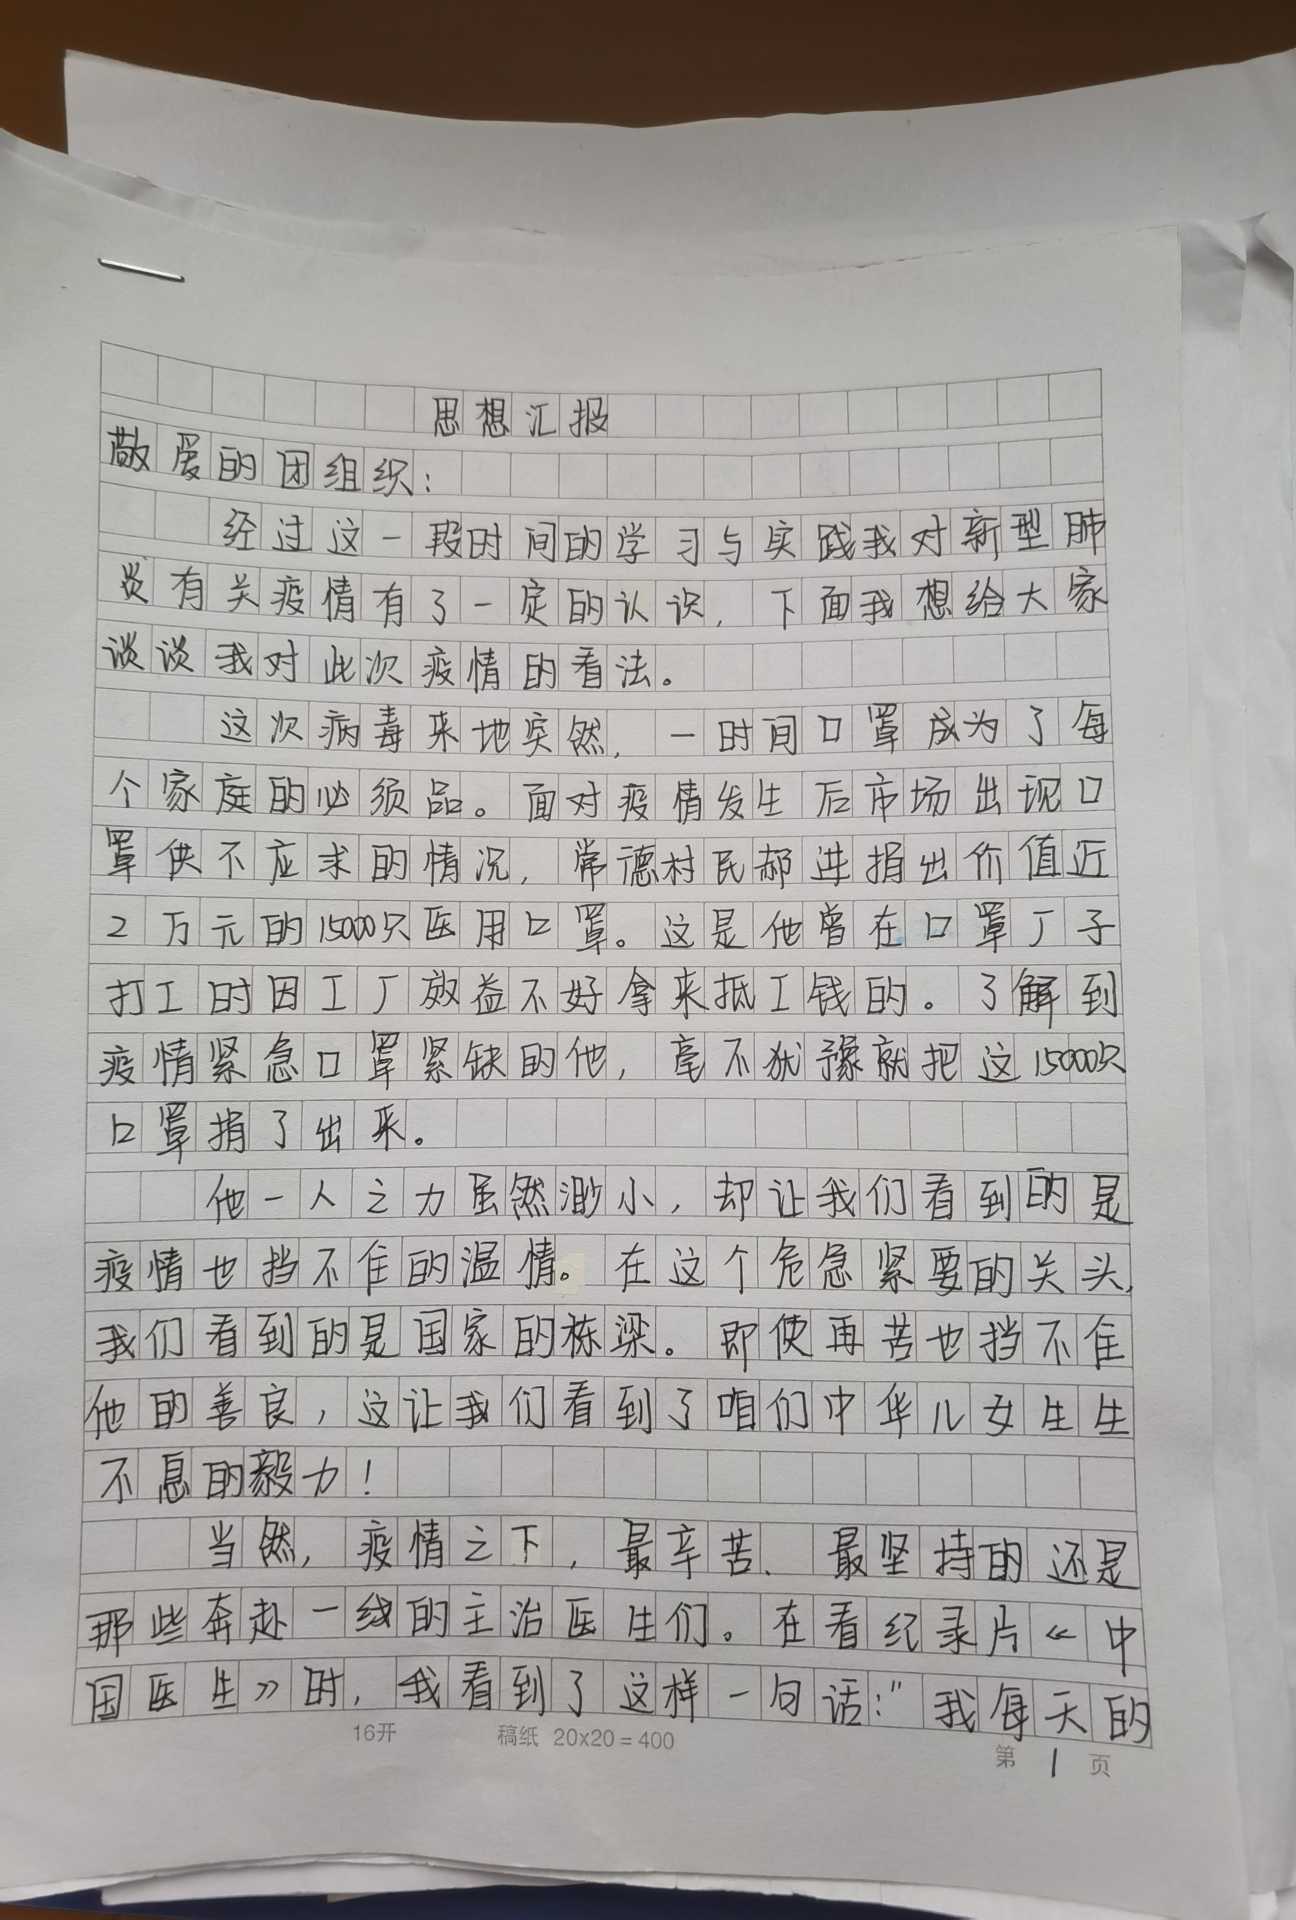 思想汇报
敬爱的团组织：
经过这一段时间的学习与实践我对新型肺
炎有关疫情有了一定的认识，下面我想给大家
谈谈我对此次疫情的看法。
这次病毒来地突然，一时间口罩成为了每
个家庭的必须品。面对疫情发生后市场出现口
罩供不应求的情况，常德村民郝进捐出价值近
2万元的15000只医用口罩。这是他曾在口罩厂子
打工时因工厂效益不好拿来抵工钱的。了解到
疫情紧急口罩紧缺的他，毫不犹豫就把这15000只
口罩捐了出来。
他一人之力虽然渺小，却让我们看到的是
疫情也挡不住的温情。在这个危急紧要的关头，
我们看到的是国家的栋梁。即使再苦也挡不住
他的善良，这让我们看到了咱们中华儿女生生
不息的毅力！
当然，疫情之下，最辛苦、最坚持的还是
那些奔赴一线的主治医生们。在看纪录片《中
国医生》时，我看到了这样一句话：“我每天的
16开 稿纸 20x20=400
第 1 页